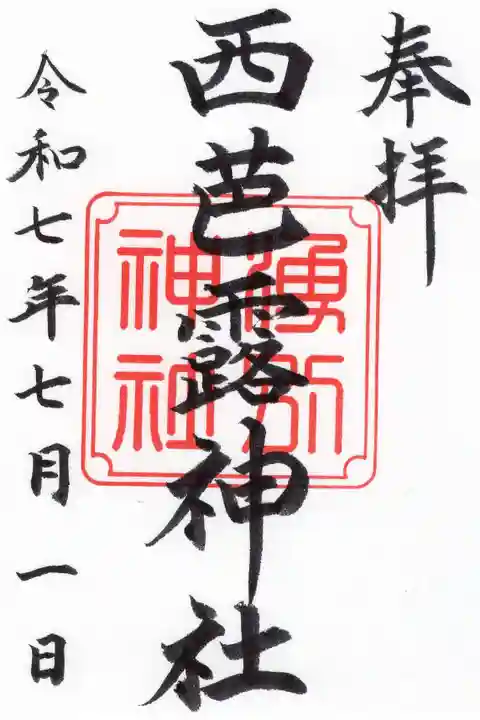 奉拝
西芭露神社
湧別
神社
令和七年七月一日